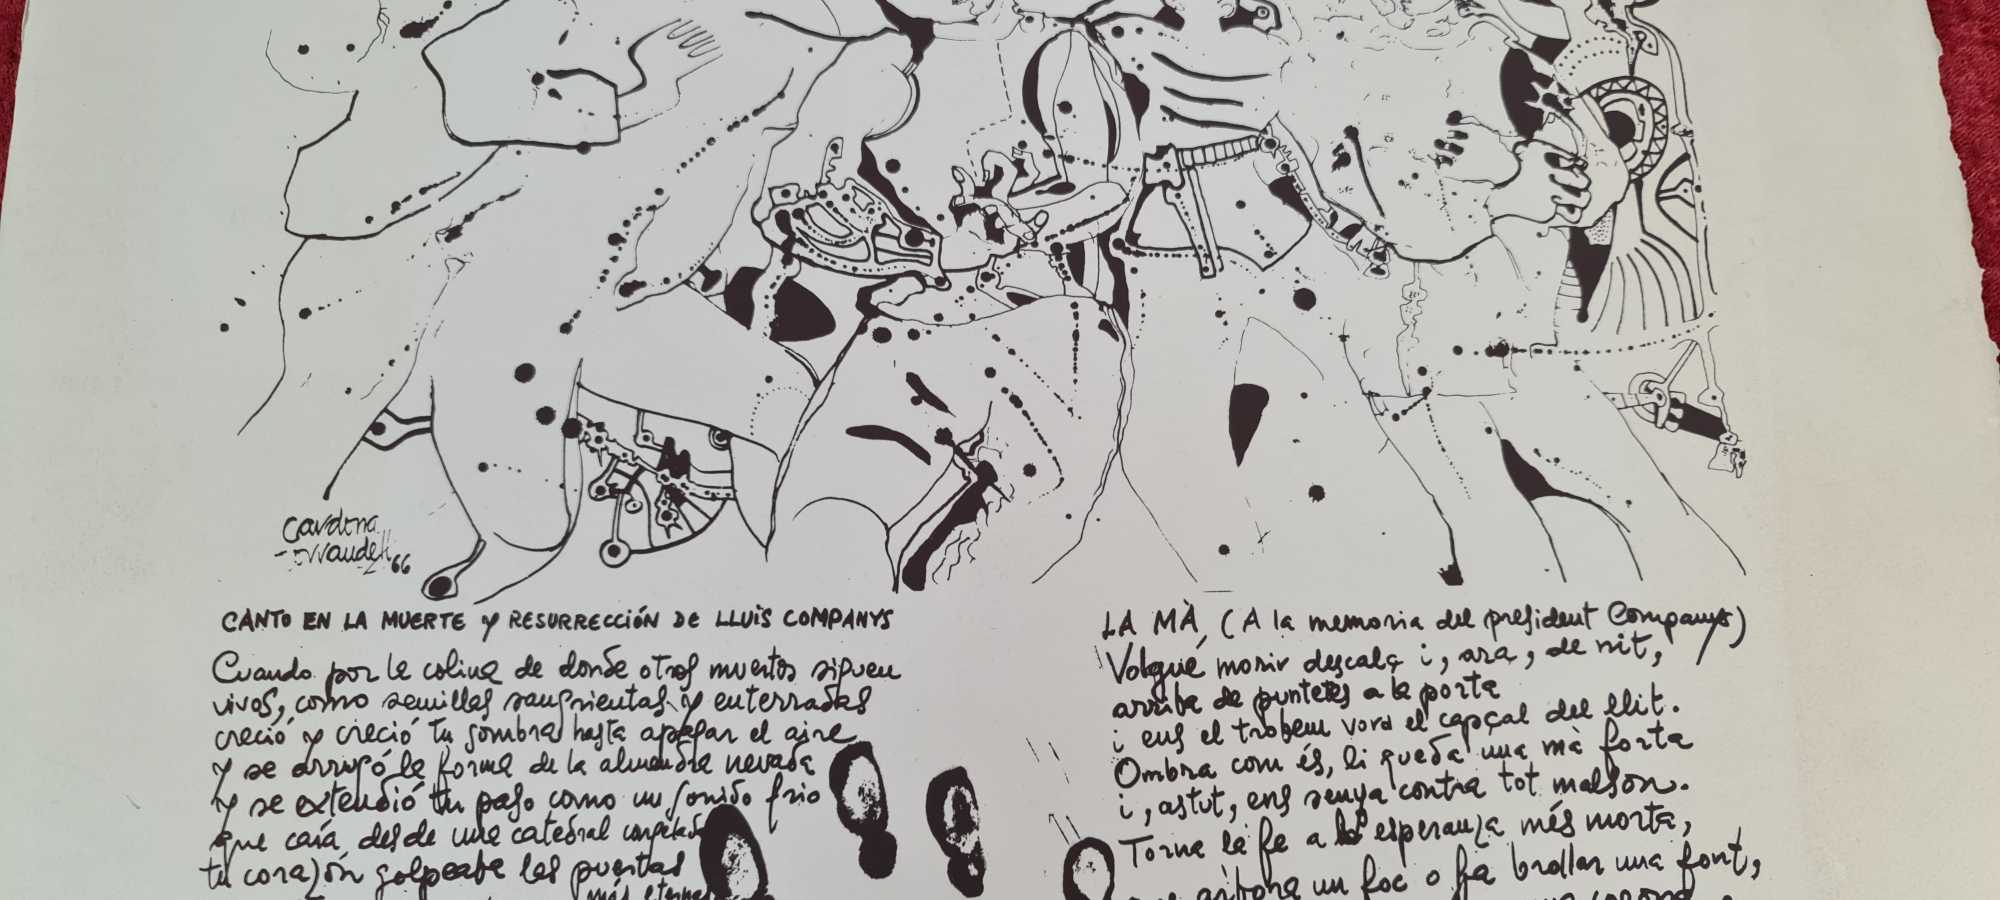 Cardona
Torrandell
66
CANTO EN LA MUERTE Y RESURRECCIÓN DE LLUIS COMPANYS
Cuando por la colina de donde otros muertos siguen
vivos, como semillas sangrientas y enterradas
creció y creció tu sombra hasta apagar el aire
y se arrugó la forma de la almendra nevada
y se extendió tu paso como un sonido frio
que caía desde una catedral congelada
tu corazón golpeaba las puertas
más eternas
LA MÀ, (A la memoria del president Companys)
Volgué morir descalç i, ara, de nit,
arriba de puntetes a la porta
i ens el trobem vora el capçal del llit.
Ombra com és, li queda una mà forta
i, astut, ens senya contra tot malson.
Torna la fe a la esperança més morta,
un foc o fa brollar una font,
corona